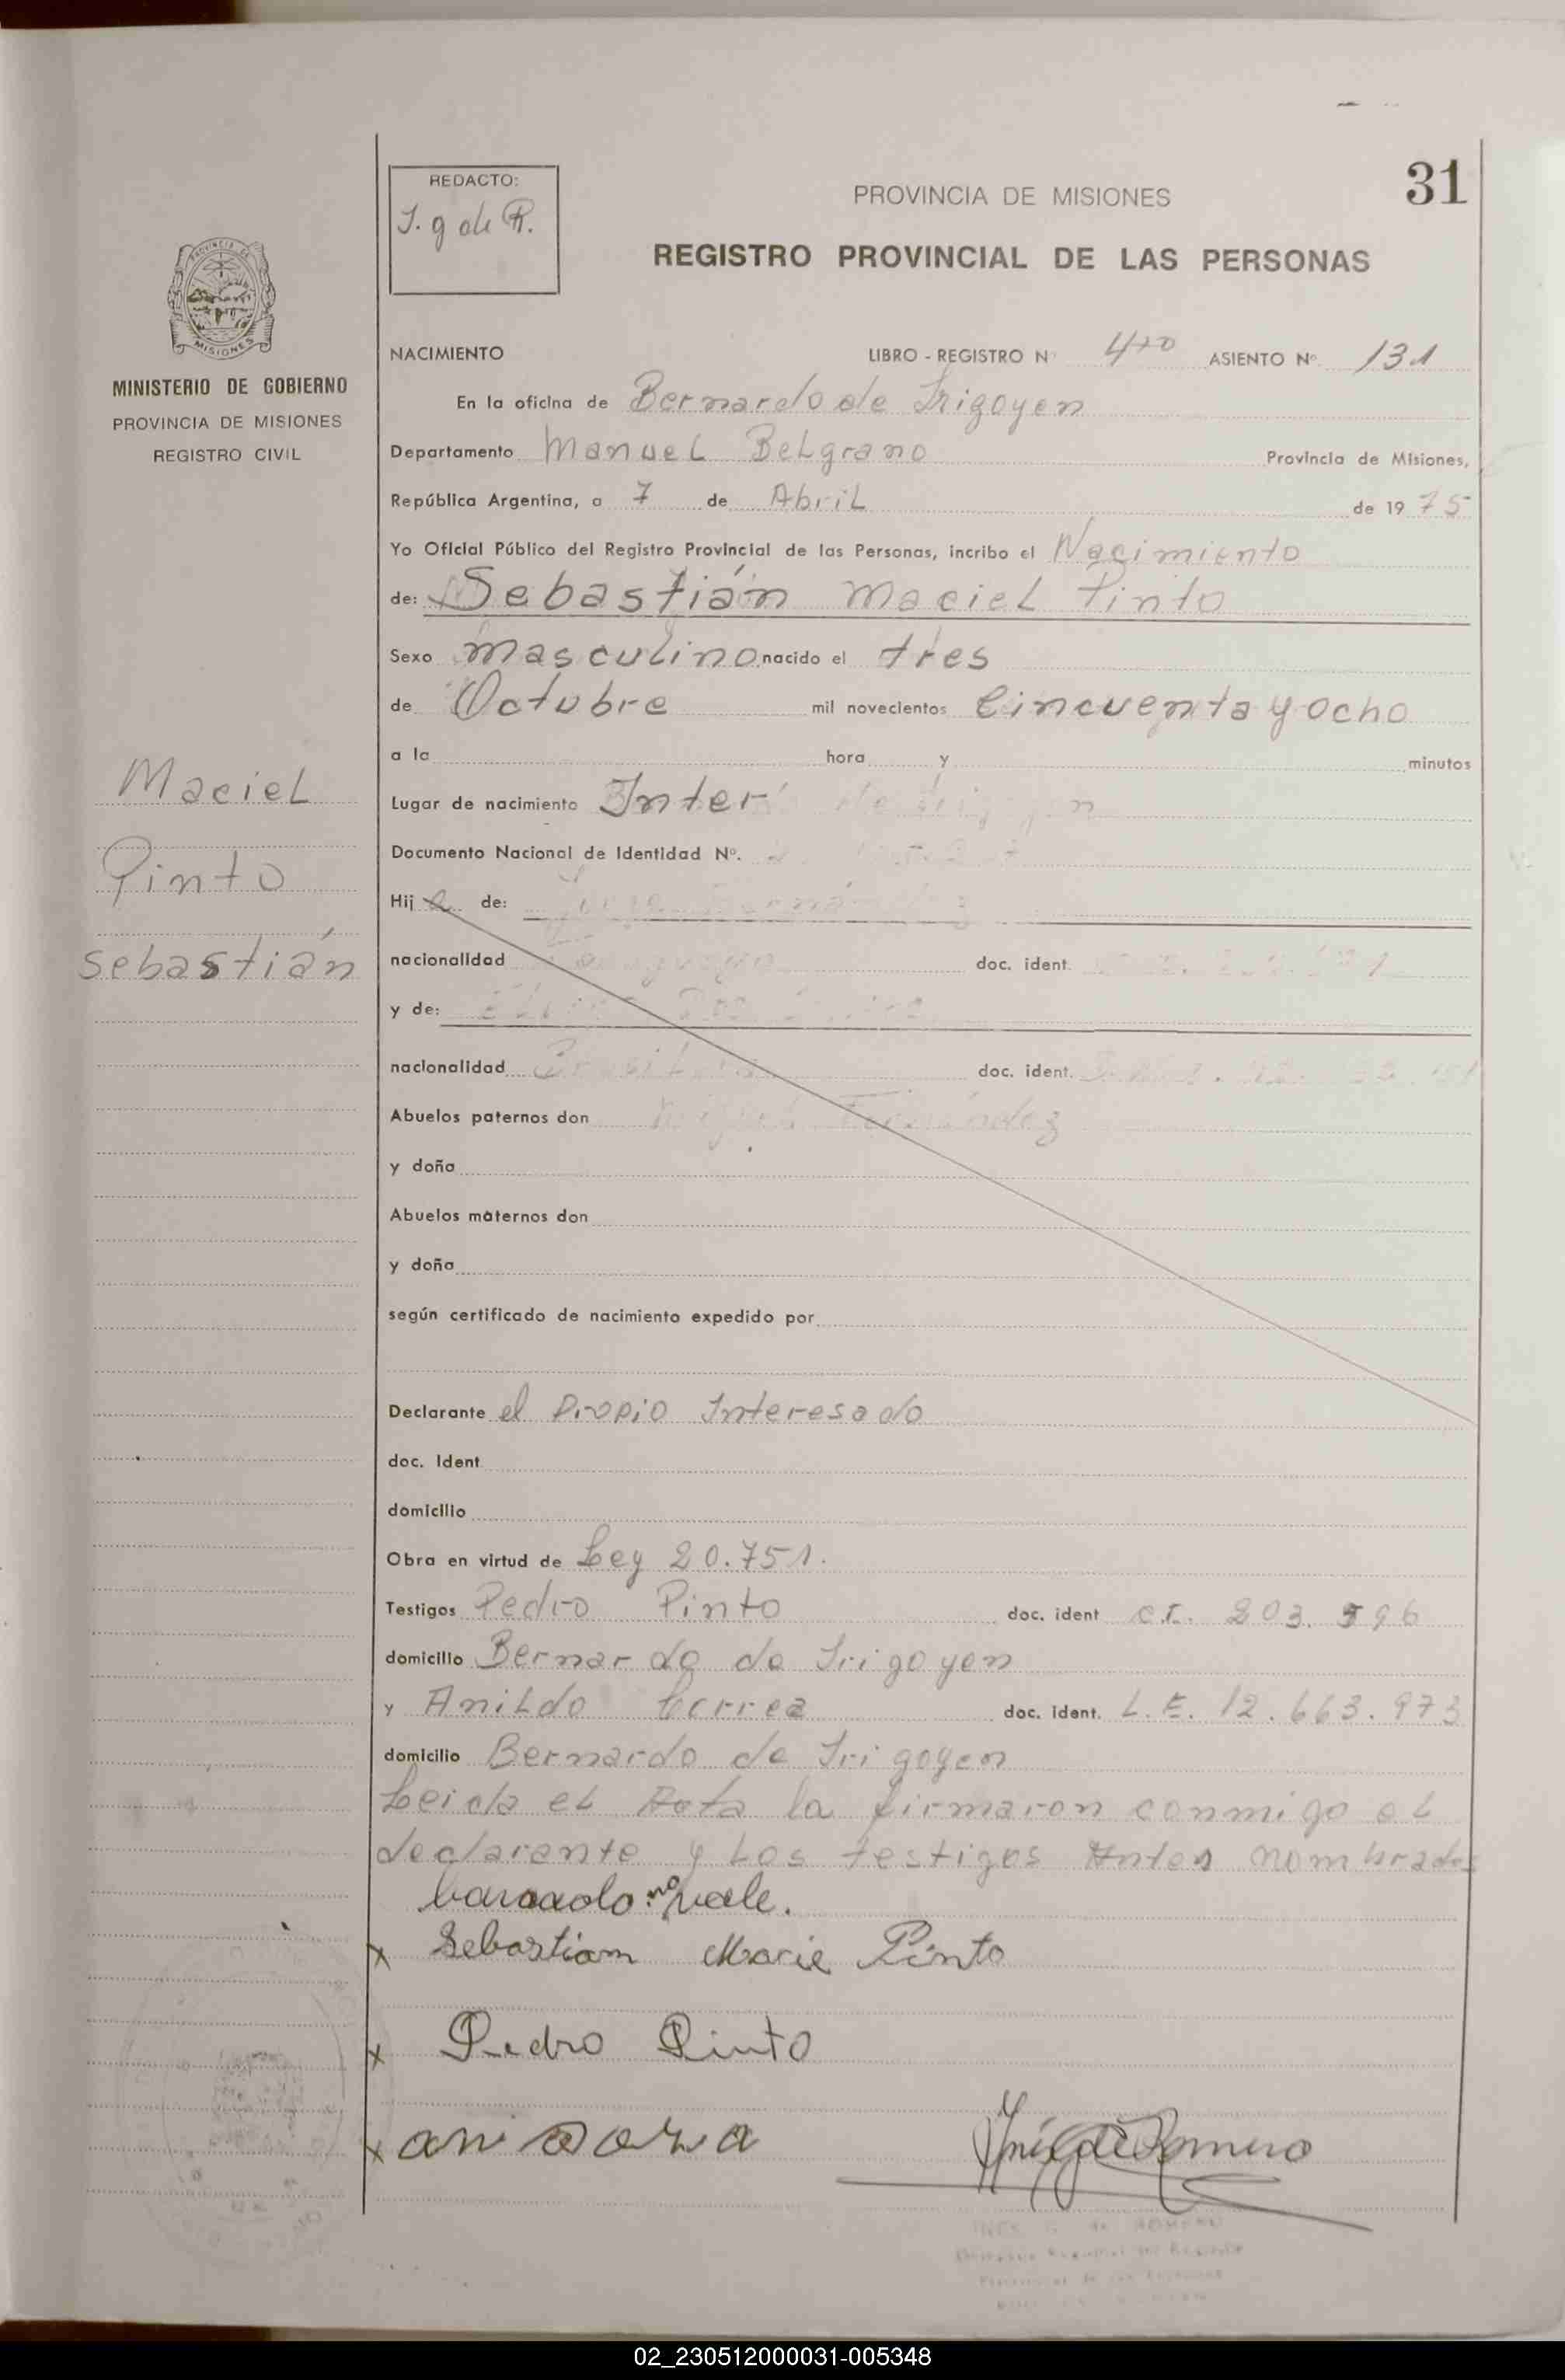 31
REDACTO:
J. g de R.
PROVINCIA DE MISIONES
REGISTRO PROVINCIAL DE LAS PERSONAS
MISIONES
MINISTERIO DE GOBIERNO
PROVINCIA DE MISIONES
REGISTRO CIVIL
NACIMIENTO LIBRO - REGISTRO Nº ASIENTO Nº. 131
En la oficina de Bernardo de Irigoyen
Departamento Manuel Belgrano Provincia de Misiones,
República Argentina, a 7 de Abril de 19 75
Yo Oficial Público del Registro Provincial de las Personas, incribo el Nacimiento
de: Sebastián Maciel Pinto
Sexo masculino nacido el tres
de Octubre mil novecientos Cincuenta y ocho
a la hora y minutos
Maciel
Pinto
Sebastián
Lugar de nacimiento Inter
Documento Nacional de Identidad Nº.
Hij de:
nacionalidad doc. ident.
y de:
nacionalidad doc. ident.
Abuelos paternos don Fernández
y doña
Abuelos maternos don
y doña
según certificado de nacimiento expedido por
Declarante el Propio Interesado
doc. Ident
domicilio
Obra en virtud de Ley 20.751.
Testigos Pedro Pinto doc. ident C.I. 203. 596
domicilio Bernardo de Irigoyen
y Anildo Correa doc. ident. L.E. 12.663.973
domicilio Bernardo de Irigoyen
Leida el Acta la firmaron conmigo el
declarante y Los testigos Antes nombrados
borrado: no vale.
x Sebastiam Marie Pinto
x Pedro Pinto
x
Inés g de Romero
INES G. de ROMERO
02_230512000031-005348